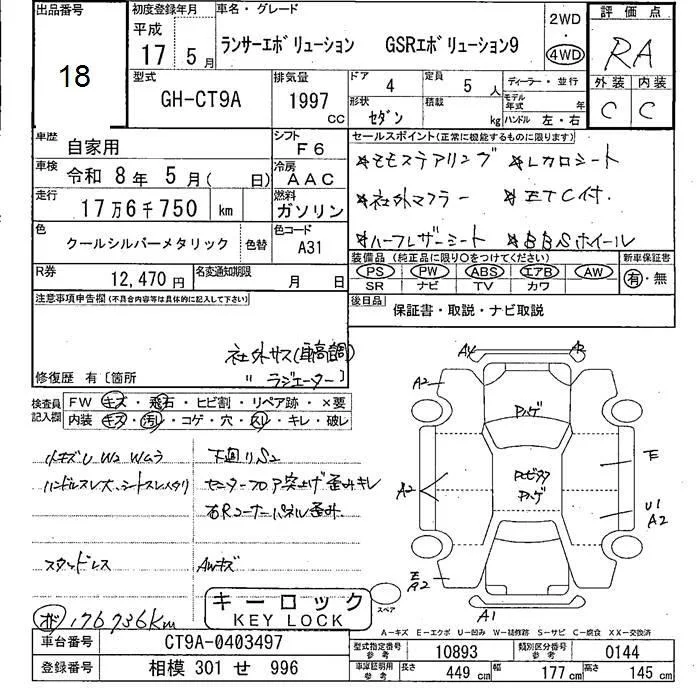 出品番号
18
初度登録年月
平成
17 5月
車名・グレード
ランサーエボリューション GSRエボリューション9
2WD
4WD
評価点
RA
外装 内装
C C
型式
GH-CT9A
排気量
1997
CC
ドア 4
定員 5 人
ディーラー・並行
形状 セダン
積載 kg
モデル年式 年
ハンドル 左・右
車歴 自家用
シフト F6
セールスポイント(正常に機能するものに限ります)
車検 令和 8年 5月( 日)
冷房 AAC
☆モモステアリング ☆レカロシート
走行 17万6千750 km
燃料 ガソリン
☆社外マフラー ☆ETC付.
色 クールシルバーメタリック 色替
色コード A31
☆ハーフレザーシート ☆BBSホイール
R券 12,470円
名変通知期限 月 日
装備品 (純正品に限り○をつけてください)
新車保証書
PS PW ABS エアB AW
SR ナビ TV カワ
有・無
注意事項申告欄(不具合内容等は具体的に記入して下さい)
後日品 保証書・取説・ナビ取説
社外サス(車高調)
修復歴 有〔箇所 〃 ラジエーター〕
検査員記入欄
FW キズ・飛石・ヒビ割・リペア跡・×要
内装 キズ・汚レ・コゲ・穴・スレ・キレ・破レ
小キズU W2 Wムラ
下廻りS2
ハンドルスレ大、シートスレヘタリ
センターフロア突上げ歪みキレ
右Rコーナーパネル歪み.
スタッドレス
AWキズ
176736km
キーロック
KEY LOCK
A2
Pハゲ
A2
E
Pハゲ
U1
A2
E
A2
A1
スペア
A-キズ E-エクボ U-凹み W-補修跡 S-サビ C-腐食 XX-交換済
車台番号 CT9A-0403497
型式指定番号 参考 10893
類別区分番号 参考 0144
登録番号 相模 301 せ 996
車庫証明用 参考 長さ 449 cm 幅 177 cm 高さ 145 cm